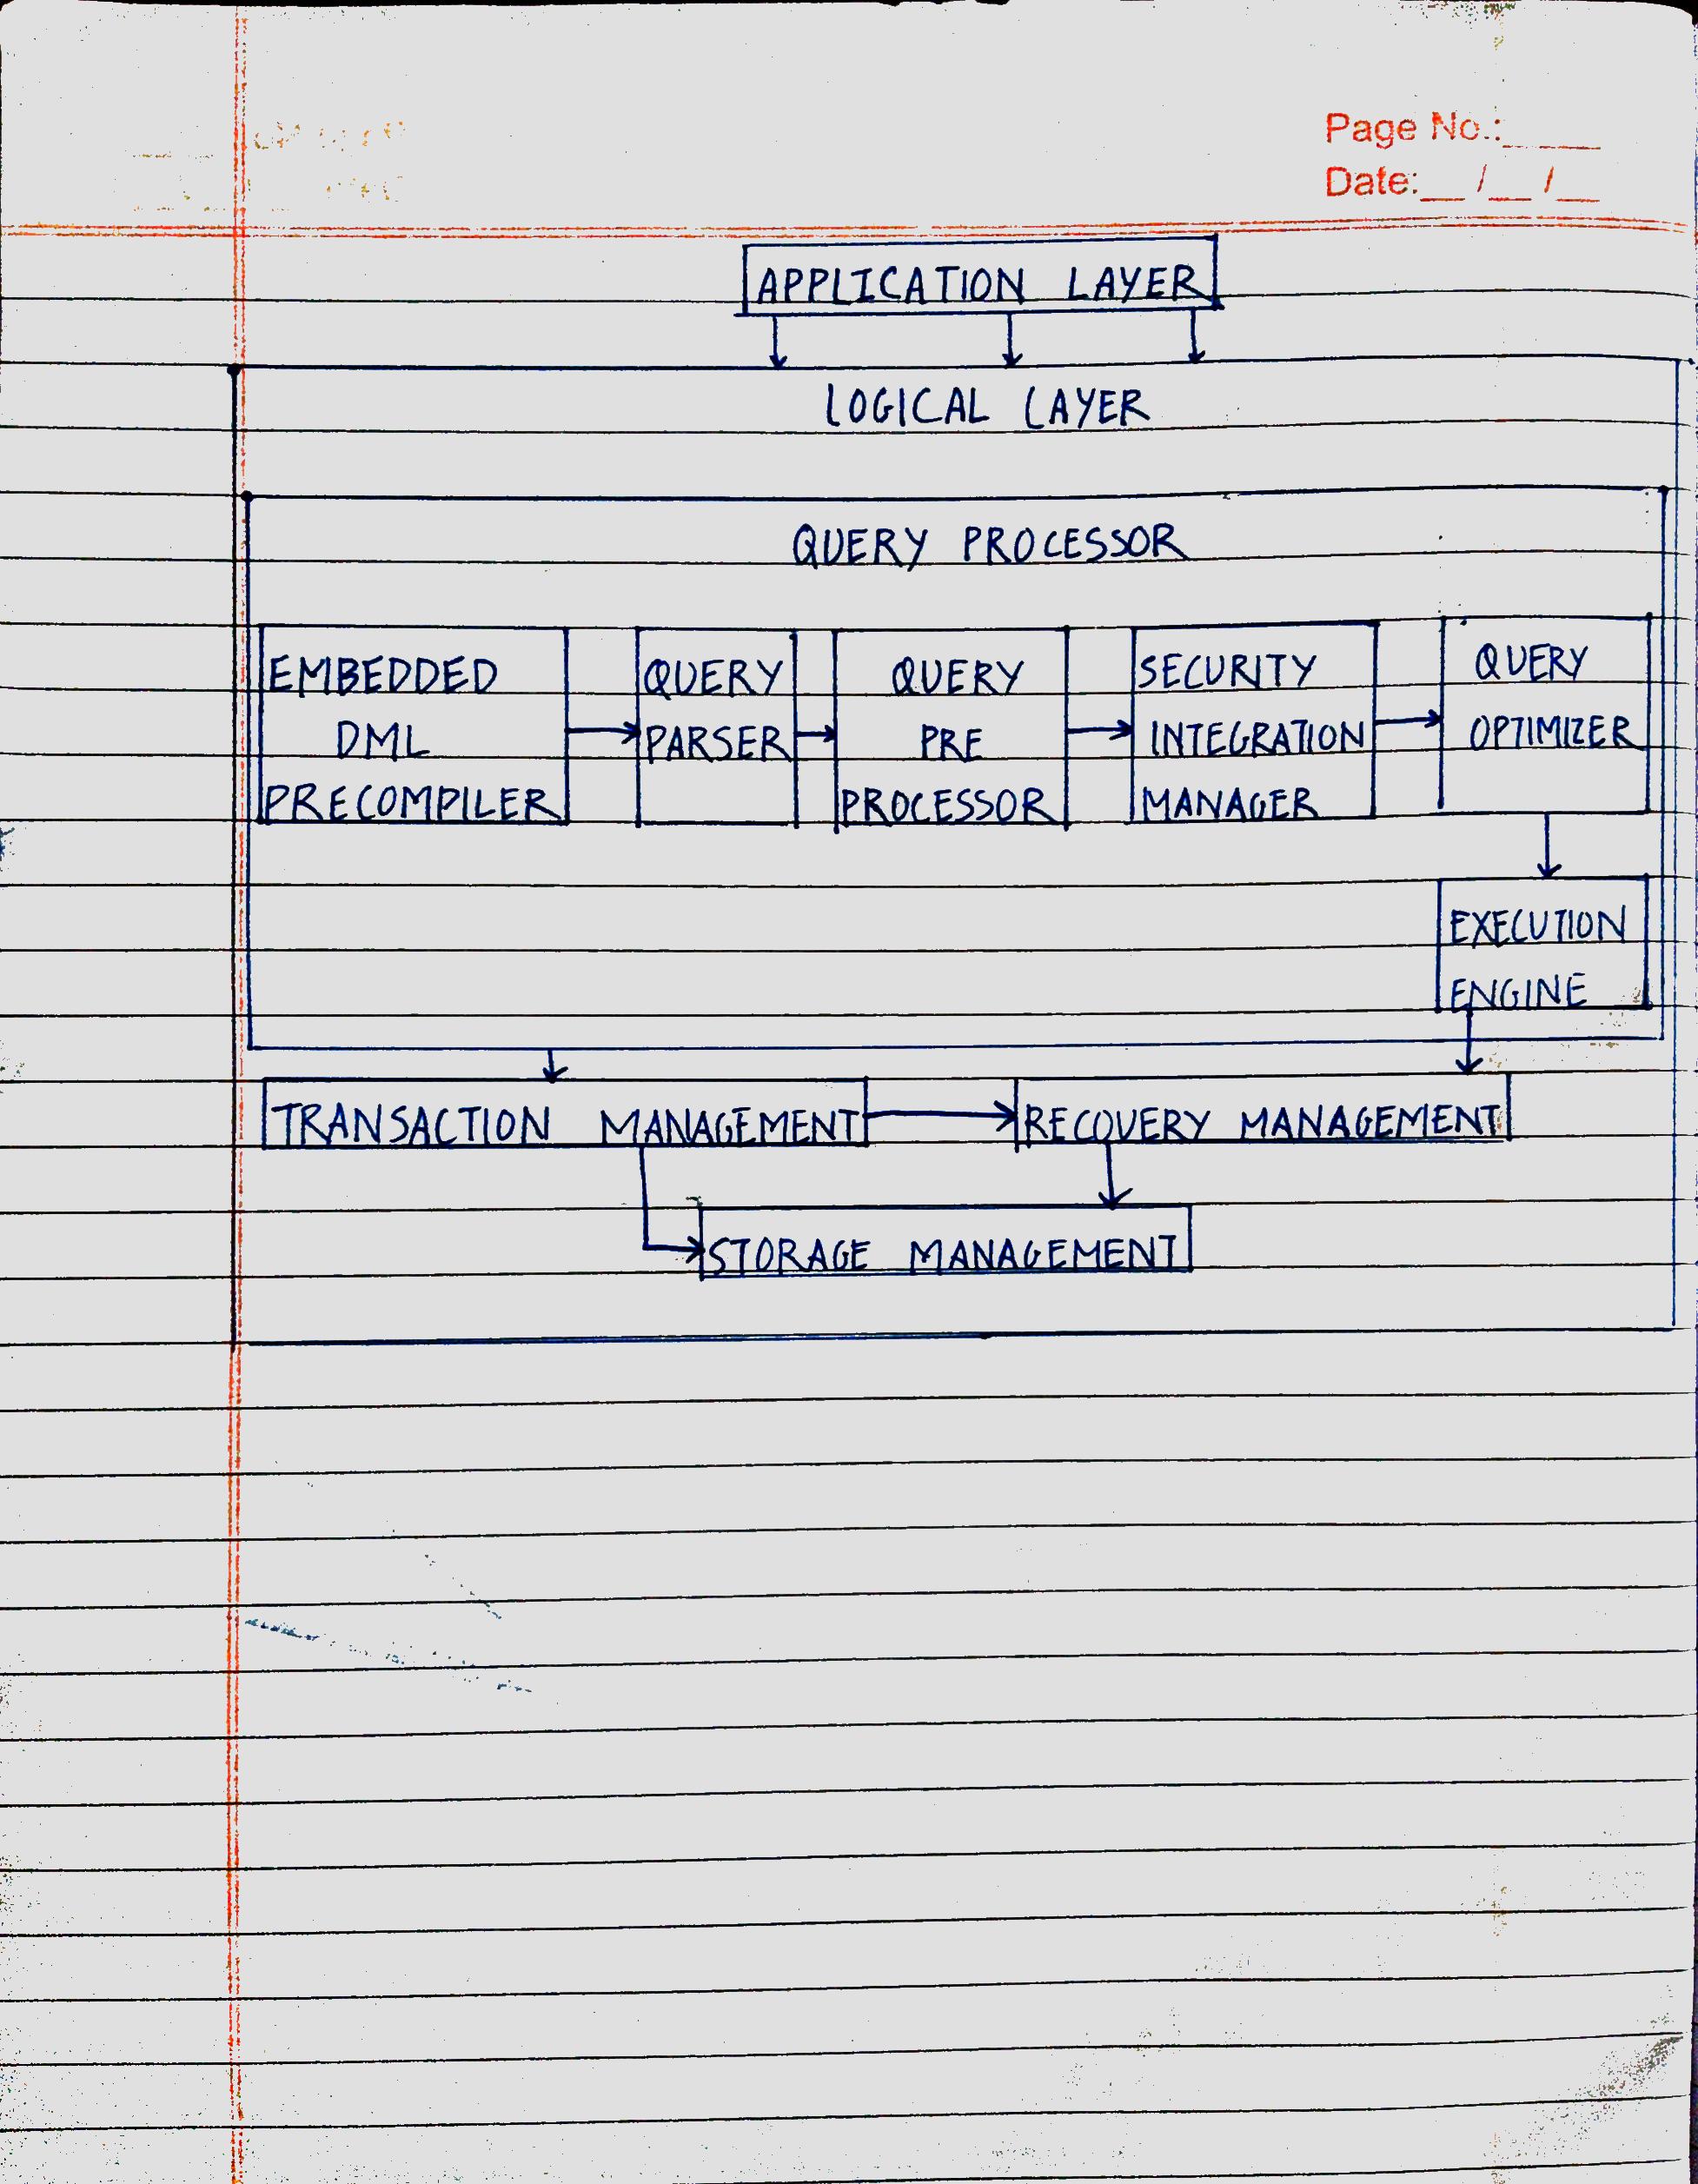 Page No.:
Date: / /
APPLICATION LAYER
LOGICAL LAYER
QUERY PROCESSOR
EMBEDDED
DML
PRECOMPILER
QUERY
PARSER
QUERY
PRE
PROCESSOR
SECURITY
INTEGRATION
MANAGER
QUERY
OPTIMIZER
EXECUTION
ENGINE
TRANSACTION MANAGEMENT
RECOVERY MANAGEMENT
STORAGE MANAGEMENT